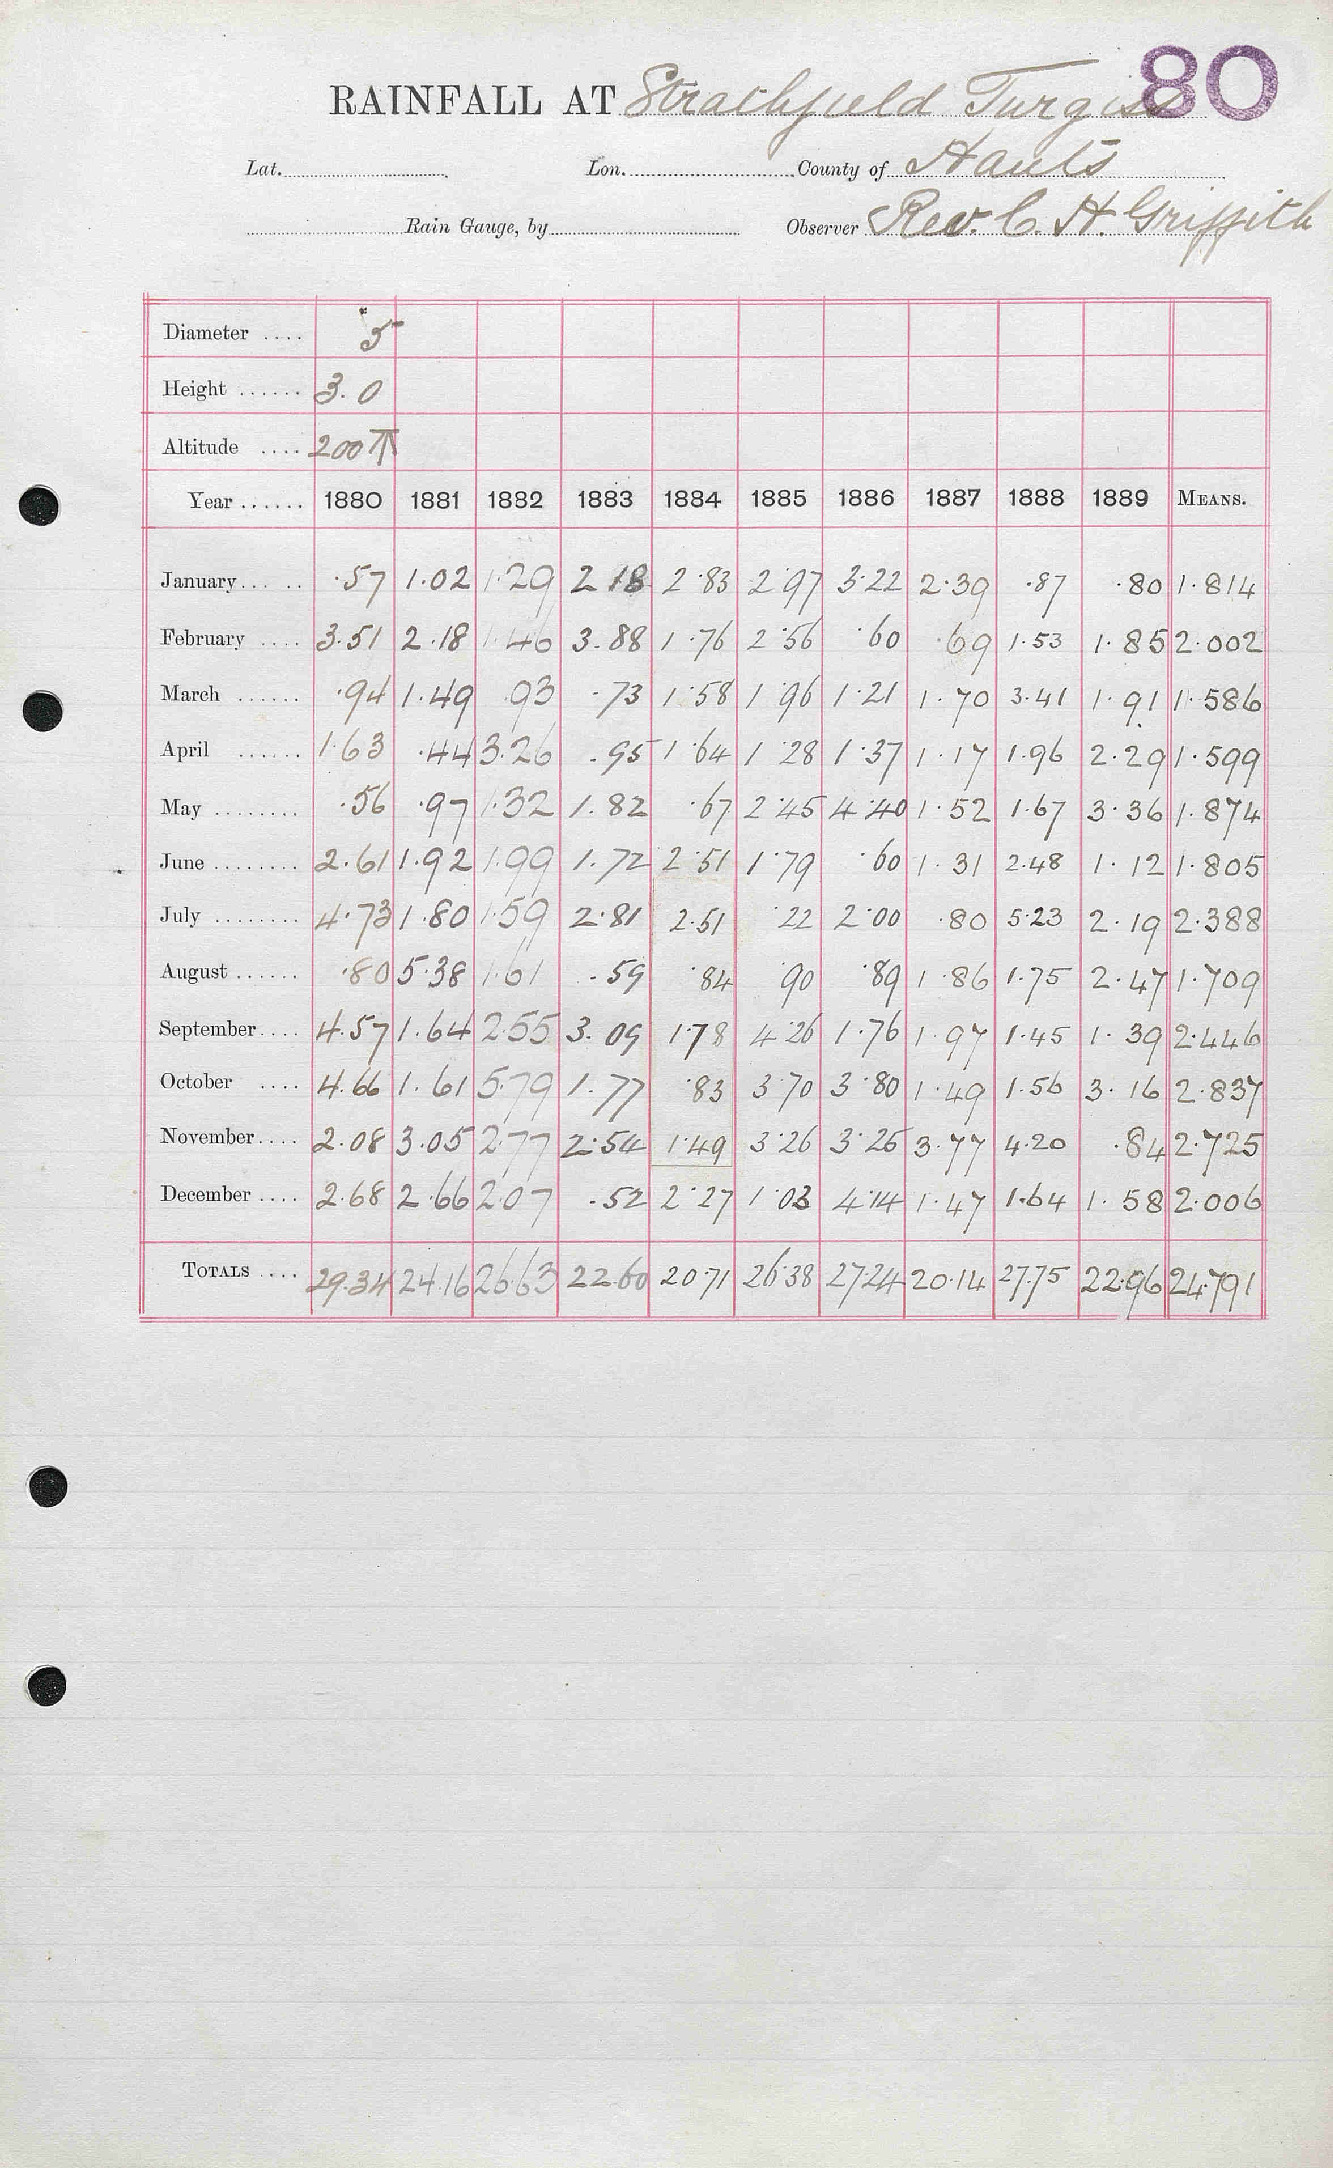 80
RAINFALL AT Strathfield Turgiss
Lat. Lon. County of Hants
Rain Gauge, by Observer Rev. C. H. Griffith
Diameter .... 5
Height ...... 3.0
Altitude .... 200 T
Year ...... 1880 1881 1882 1883 1884 1885 1886 1887 1888 1889 MEANS.
January... .. .57 1.02 1.29 2.18 2.83 2.97 3.22 2.39 .87 .80 1.814
February .... 3.51 2.18 1.46 3.88 1.76 2.56 .60 .69 1.53 1.85 2.002
March ...... .94 1.49 .93 .73 1.58 1.96 1.21 1.70 3.41 1.91 1.586
April ...... 1.63 .44 3.26 .95 1.64 1.28 1.37 1.17 1.96 2.29 1.599
May ........ .56 .97 1.32 1.82 .67 2.45 4.40 1.52 1.67 3.36 1.874
June ........ 2.61 1.92 1.99 1.72 2.51 1.79 .60 1.31 2.48 1.12 1.805
July ........ 4.73 1.80 1.59 2.81 2.51 .22 2.00 .80 5.23 2.19 2.388
August ...... .80 5.38 1.61 .59 .84 .90 .89 1.86 1.75 2.47 1.709
September.... 4.57 1.64 2.55 3.09 1.78 4.26 1.76 1.97 1.45 1.39 2.446
October .... 4.66 1.61 5.79 1.77 .83 3.70 3.80 1.49 1.56 3.16 2.837
November.... 2.08 3.05 2.77 2.54 1.49 3.26 3.25 3.77 4.20 .84 2.725
December .... 2.68 2.66 2.07 .52 2.27 1.03 4.14 1.47 1.64 1.58 2.006
TOTALS .... 29.34 24.16 26.63 22.60 20.71 26.38 27.24 20.14 27.75 22.96 24.791